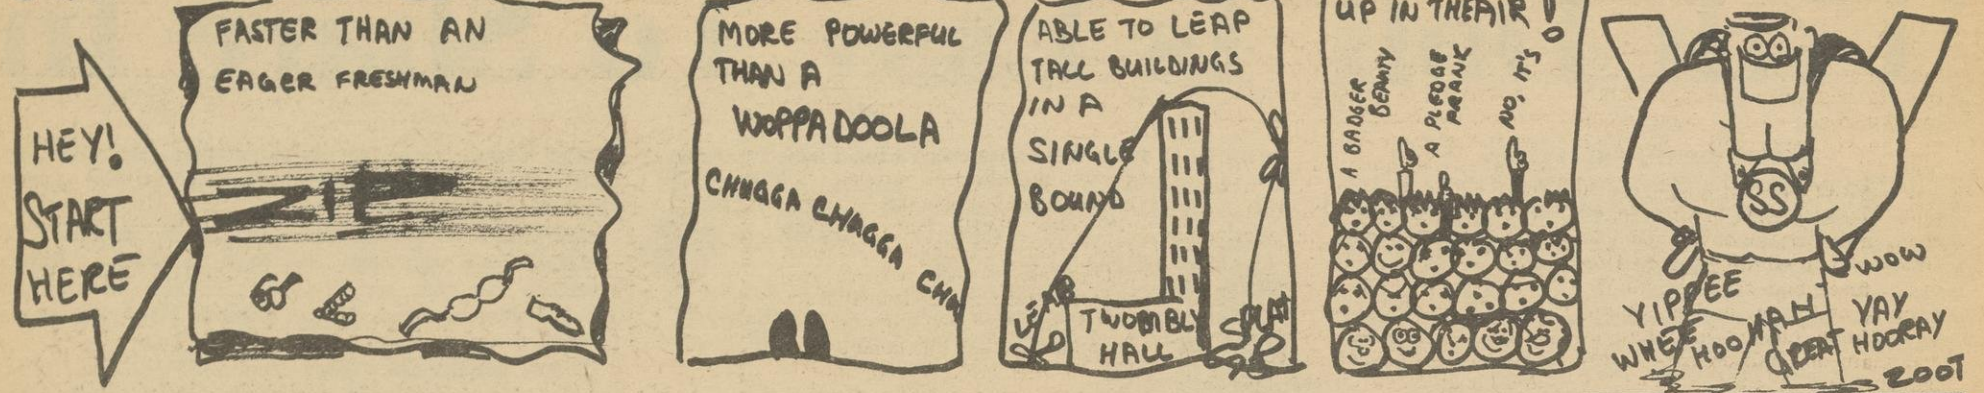 HEY!
START
HERE
FASTER THAN AN
EAGER FRESHMAN
ZIP
MORE POWERFUL
THAN A
WOPPADOOLA
CHUGGA CHUGGA CHU
ABLE TO LEAP
TALL BUILDINGS
IN A
SINGLE
BOUND
LEAP
TWOMBLY
HALL
SPLAT
UP IN THE AIR!
A BADGER
BEANY
A PLEDGE
PRANK
NO, IT'S
SS
YIPPEE
WOW
WHEE
HOO
MAN
GREAT
YAY
HOORAY
ZOOT